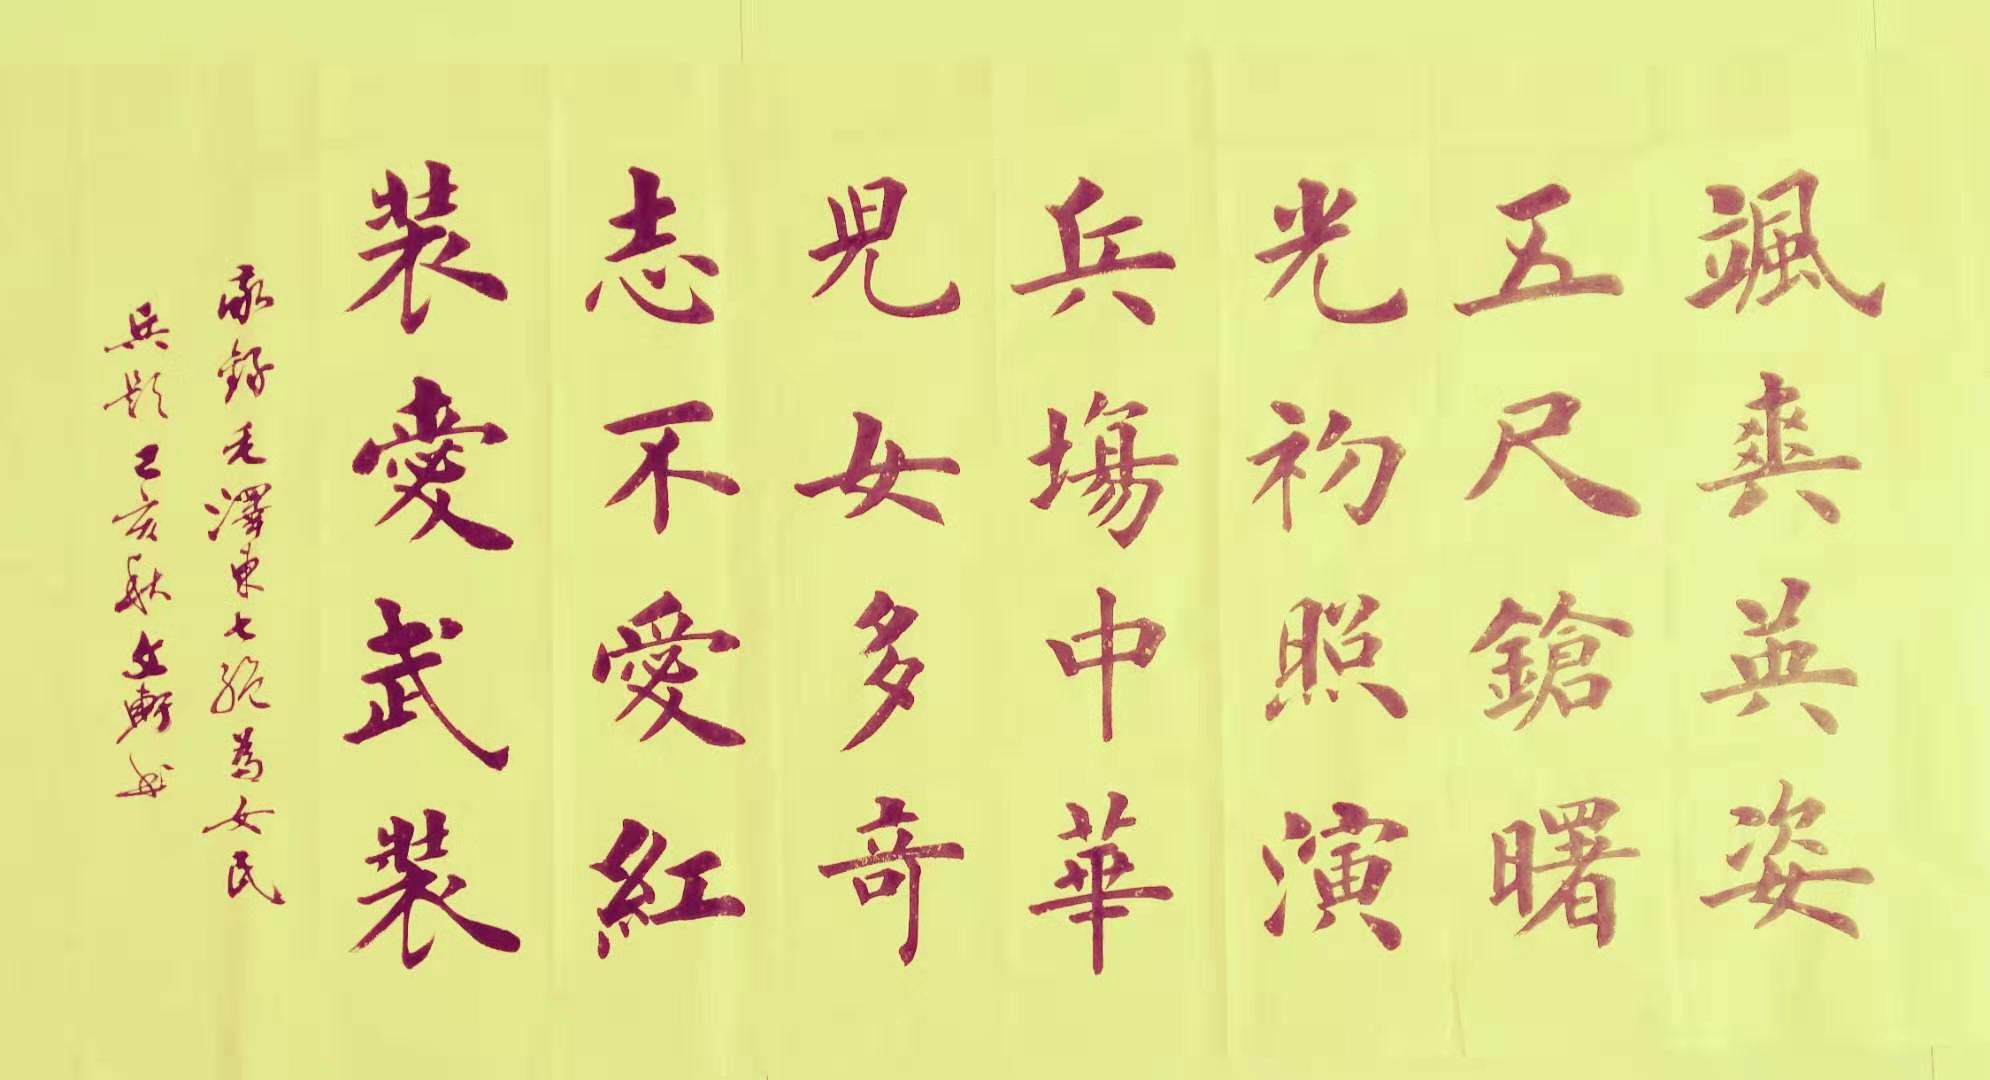 颯爽英姿
五尺鎗曙
光初照演
兵塲中華
児女多奇
志不愛紅
裝愛武裝
錄毛澤東七絕為女民
兵題己亥秋文軒书